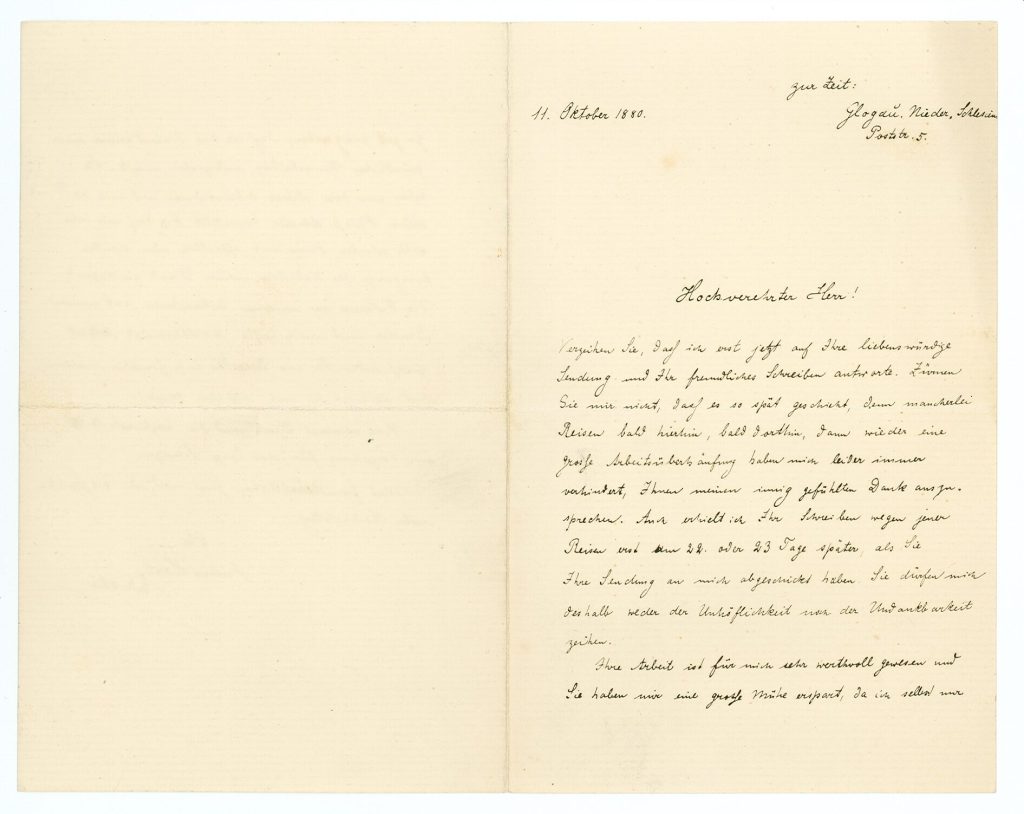 zur Zeit:
11. Oktober 1880.
Glogau. Nieder, Schlesien
Poststr. 5.
Hochverehrter Herr!
Verzeihen Sie, daß ich erst jetzt auf Ihre liebenswürdige
Sendung und Ihr freundliches Schreiben antworte. Zürnen
Sie mir nicht, daß es so spät geschieht, denn mancherlei
Reisen bald hierhin, bald dorthin, dann wieder eine
große Arbeitsüberhäufung haben mich leider immer
verhindert, Ihnen meinen innig gefühlten Dank auszu-
sprechen. Auch erhielt ich Ihr Schreiben wegen jener
Reisen erst um 22. oder 23 Tage später, als Sie
Ihre Sendung an mich abgeschickt haben. Sie dürfen mich
deshalb weder der Unhöflichkeit noch der Undankbarkeit
zeihen.
Ihre Arbeit ist für mich sehr werthvoll gewesen und
Sie haben mir eine große Mühe erspart, da ich selbst nur